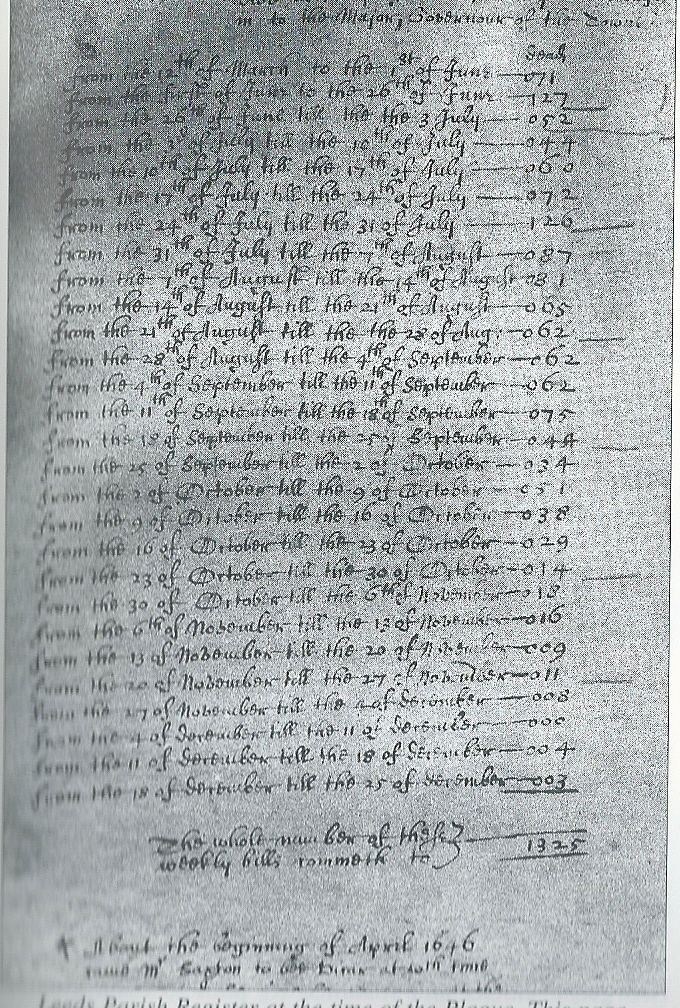 m to the Major, Governour of the Towne
Dead
from the 12th of March to the 1st of June — 071
from the first of June to the 26th of June 127
from the 26th of June till the 3 July — 052
from the 3d of July till the 10th of July — 044
from the 10th of July till the 17th of July — 060
from the 17th of July till the 24th of July — 072
from the 24th of July till the 31 of July — 126
from the 31th of July till the 7th of August — 087
from the 7th of August till the 14th of August 081
from the 14th of August till the 21th of August — 065
from the 21th of August till the the 28 of Aug: — 062
from the 28th of August till the 4th of September — 062
from the 4th of September till the 11th of September — 062
from the 11th of September till the 18th of September — 075
from the 18 of September till the 25 of September — 044
from the 25 of September till the 2 of October — 034
from the 2 of October till the 9 of October — 051
from the 9 of October till the 16 of October — 038
from the 16 of October till the 23 of October — 029
from the 23 of October till the 30 of October — 014
from the 30 of October till the 6th of November — 018
from the 6th of November till the 13 of November — 016
from the 13 of November till the 20 of November — 009
from the 20 of November till the 27 of November — 011
from the 27 of November till the 4 of december — 008
from the 4 of december till the 11 of december — 000
from the 11 of december till the 18 of december — 004
from the 18 of december till the 25 of december — 003
The whole number of these
weekly bills commeth to 1325
About the beginning of April 1646
came Mr to
Leeds Parish Register at the time of the Plague. This